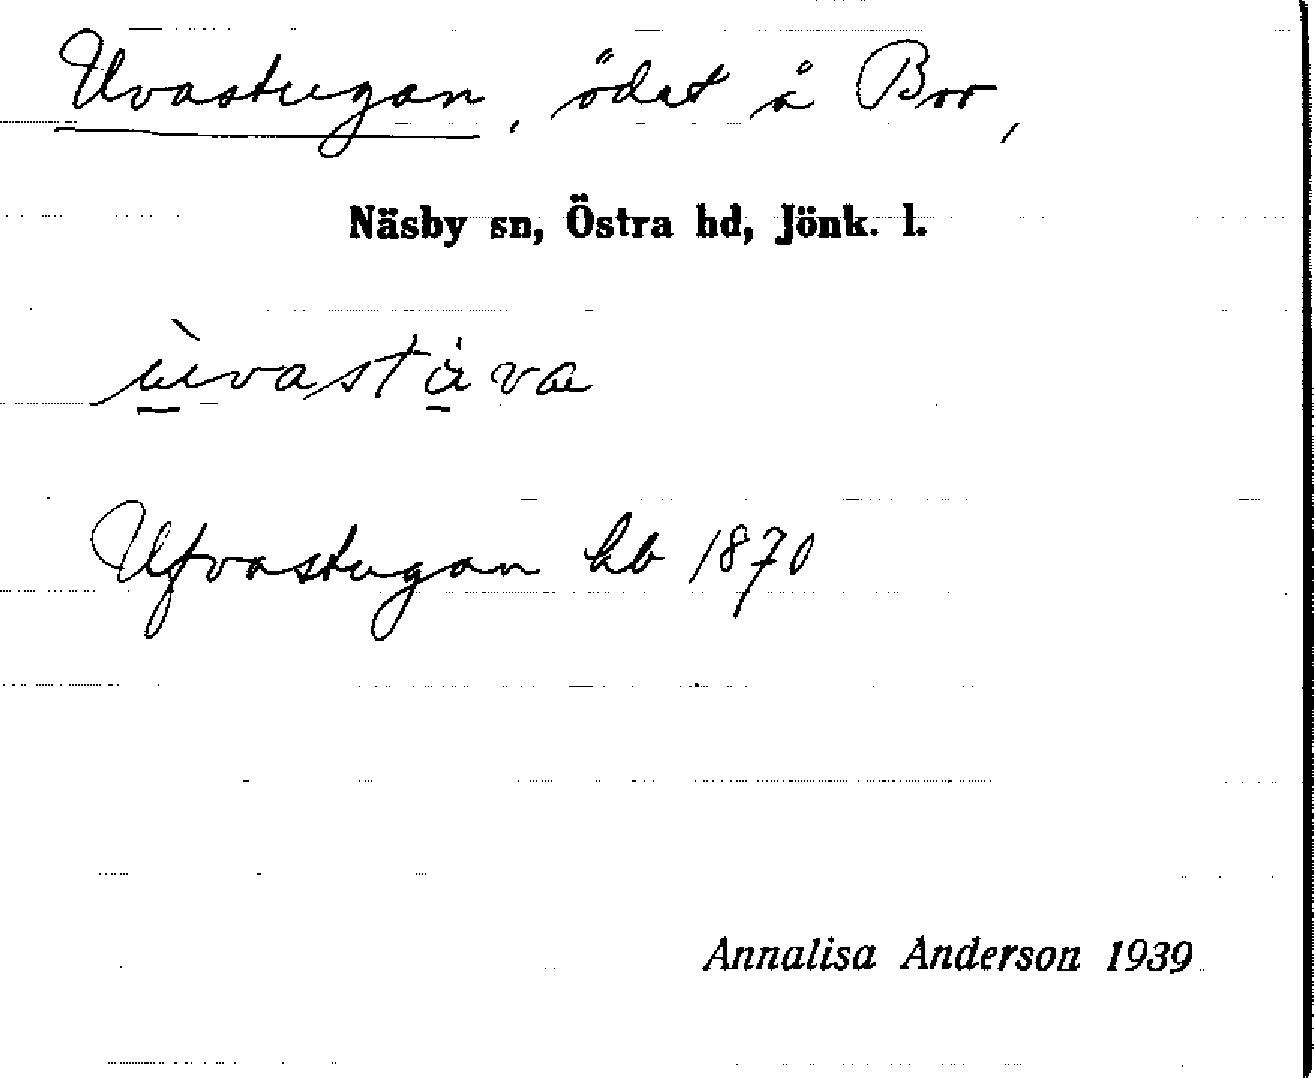 Uvastugan, ödet å Bor,
Näsby sn, Östra hd, Jönk. l.
ùvaståva
Ufvastugan hb 1870
Annalisa Anderson 1939